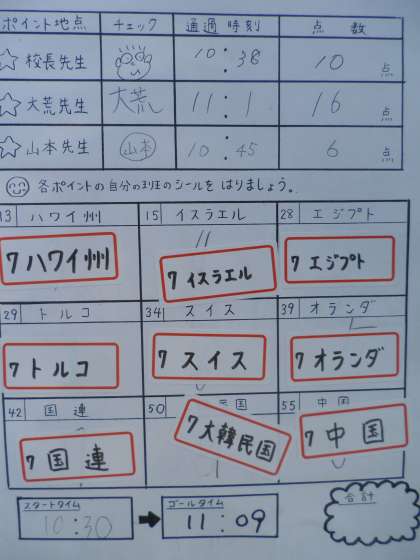 ポイント地点 チェック 通過時刻 点数
☆校長先生 10:38 10点
☆大荒先生 大荒 11:1 16点
☆山本先生 山本 10:45 6点
各ポイントの自分の班のシールをはりましょう。
13 ハワイ州 15 イスラエル 28 エジプト
7 ハワイ州 7 イスラエル 7 エジプト
29 トルコ 34 スイス 39 オランダ
7 トルコ 7 スイス 7 オランダ
42 国連 50 民国 55 中国
7 国連 7 大韓民国 7 中国
スタートタイム ゴールタイム 合計
10:30 → 11:09